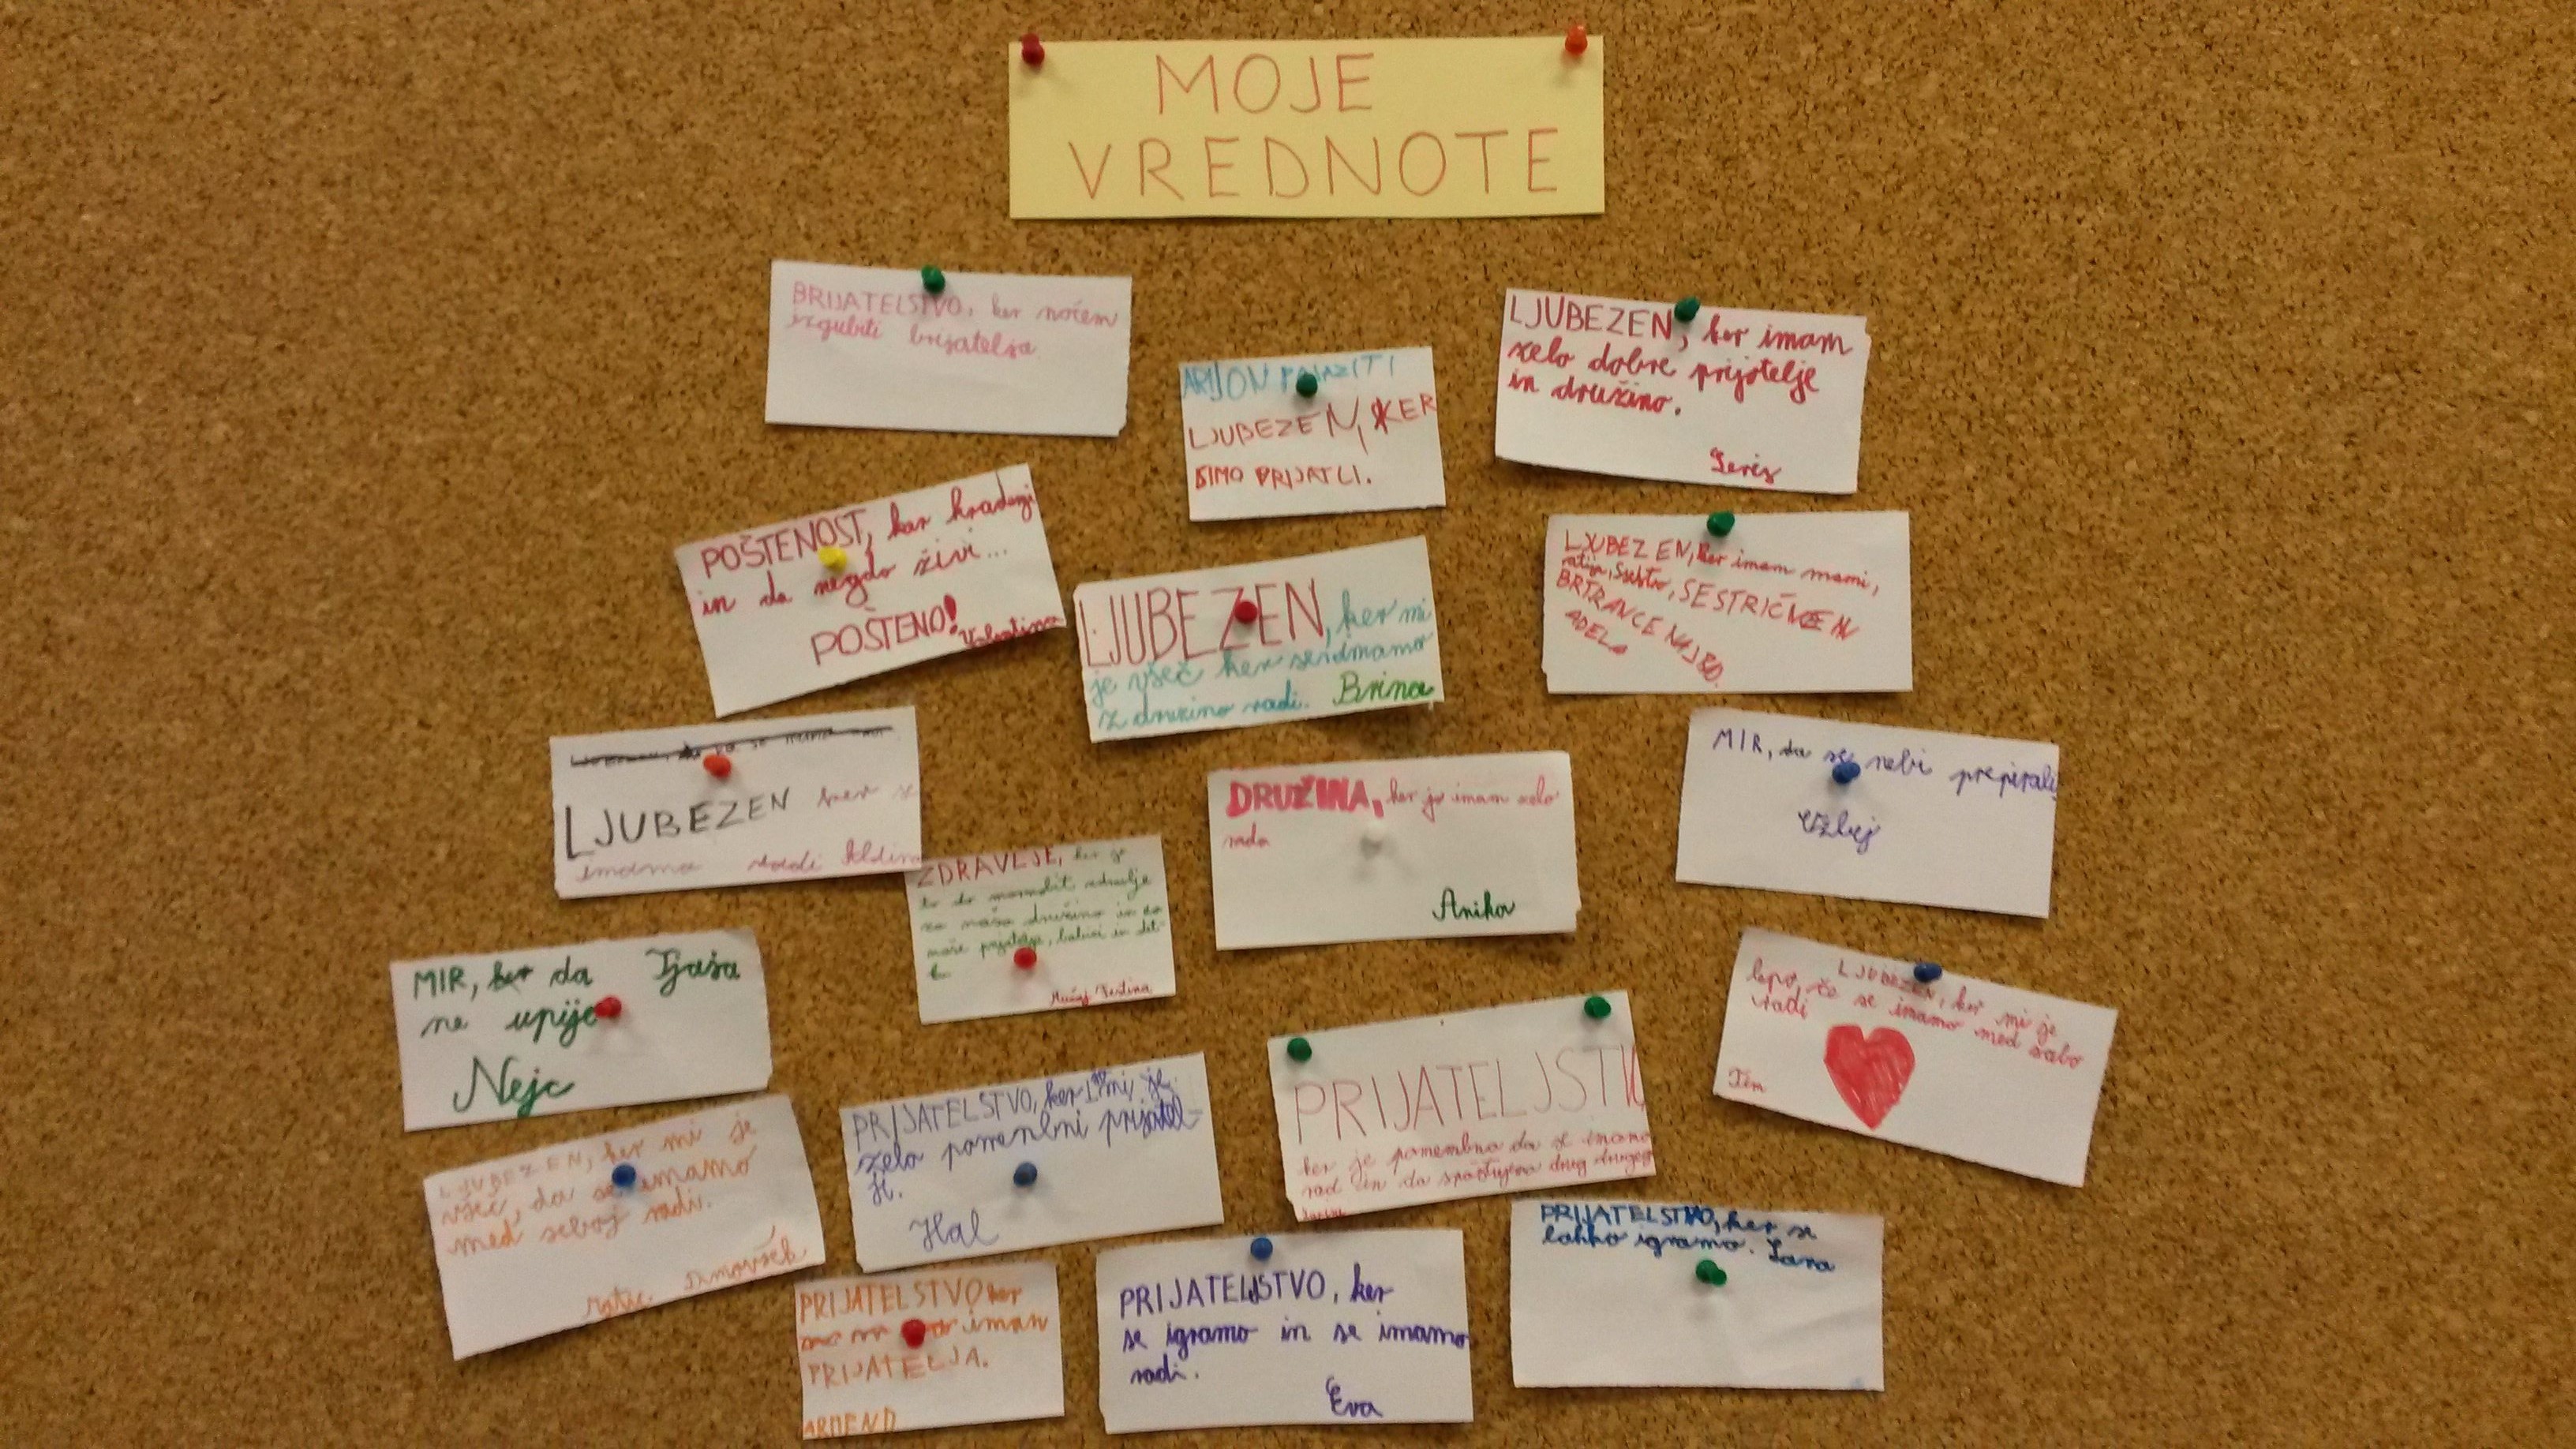 MOJE
VREDNOTE
BRIJATELSTVO, ker nočem
izgubiti brijatelja
ARIJON
LJUBEZEN, KER
SIMO PRIJATLI.
LJUBEZEN, ker imam
zelo dobre prijatelje
in družino.
POŠTENOST, kar kradeji
in da negdo živi...
POŠTENO! Valentina
LJUBEZEN, ker mi
je všeč ker seidmamo
z družino radi. Brina
LJUBEZEN, ker imam mami,
SESTRIČNE IN
BRTRANCE
ADELA
LJUBEZEN ker s
imama radi
DRUŽINA, ker jo imam zelo
rada
Anika
MIR, da se nebi prepirali
ZDRAVLJE, ker je
to da
za našo družino in za
naše prijatelje, babici in
MIR, ker da Tjaša
ne upije
Nejc
LJUBEZEN, ker mi je
lepo, če se imamo med sabo
radi
Tim
PRIJATELJSTV
ker je pomembno da se imamo
rad in da spoštujemo drug drugega
PRIJATELSTVO, ker mi je
zelo pomembni prijatel-
ji.
Hal
LJUBEZEN, ker mi je
všeč, da se imamo
med seboj radi.
PRIJATELSTVO, ker se
lahko igramo. Lana
PRIJATELJSTVO, ker
se igramo in se imamo
radi.
Eva
PRIJATELSTVO ker
imam
PRIJATELJA.
ARDEND